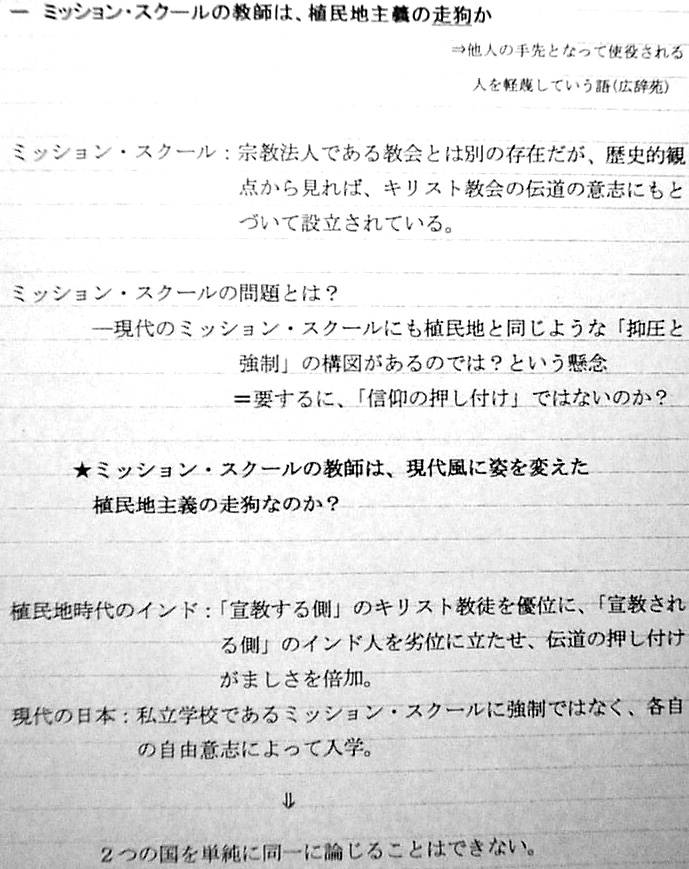 一 ミッション・スクールの教師は、植民地主義の走狗か
⇒他人の手先となって使役される
人を軽蔑していう語(広辞苑)
ミッション・スクール：宗教法人である教会とは別の存在だが、歴史的観
点から見れば、キリスト教会の伝道の意志にもと
づいて設立されている。
ミッション・スクールの問題とは？
―現代のミッション・スクールにも植民地と同じような「抑圧と
強制」の構図があるのでは？という懸念
＝要するに、「信仰の押し付け」ではないのか？
★ミッション・スクールの教師は、現代風に姿を変えた
植民地主義の走狗なのか？
植民地時代のインド：「宣教する側」のキリスト教徒を優位に、「宣教され
る側」のインド人を劣位に立たせ、伝道の押し付け
がましさを倍加。
現代の日本：私立学校であるミッション・スクールに強制ではなく、各自
の自由意志によって入学。
⇓
２つの国を単純に同一に論じることはできない。